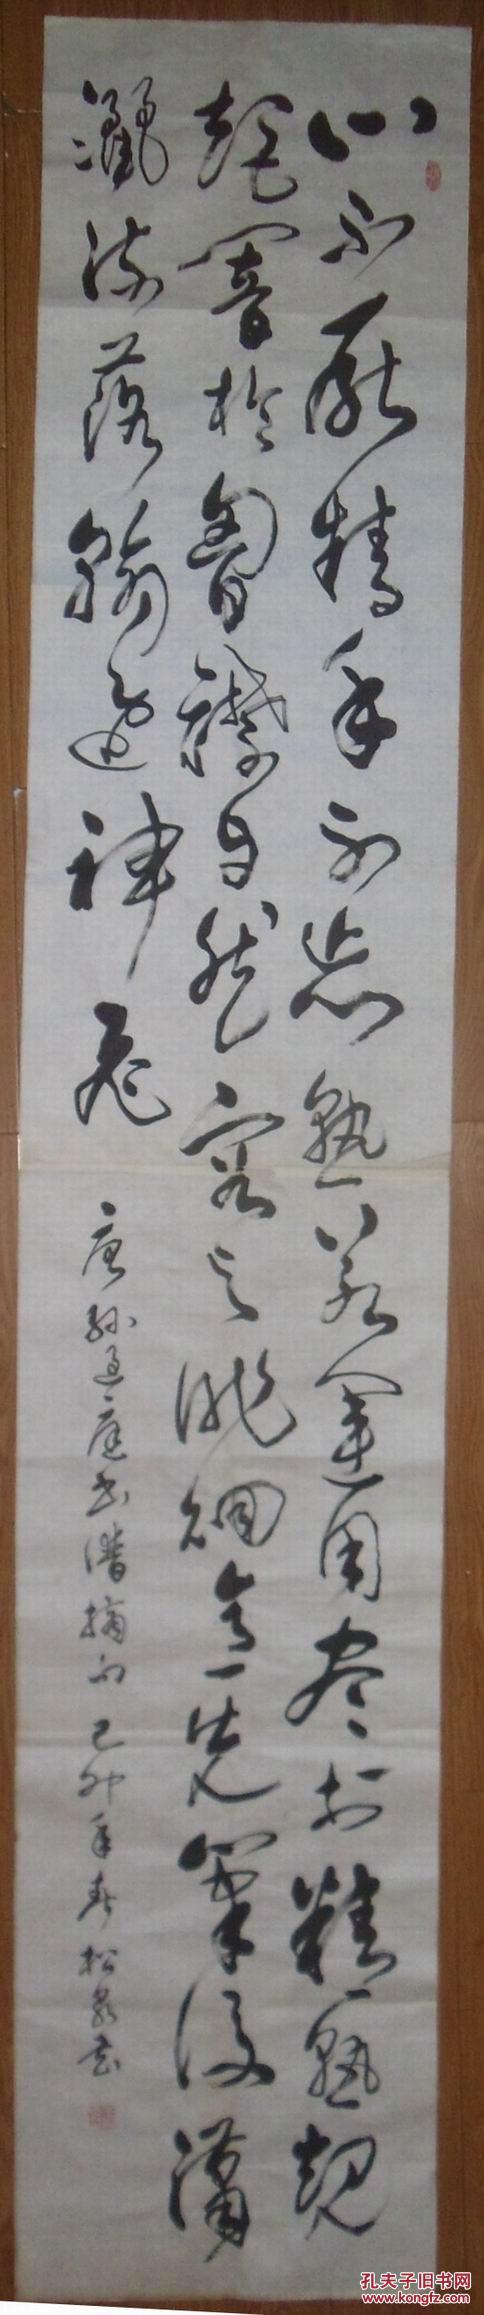 心不厭精手不忘熟若運用尽於精熟規
矩闇於胷襟自然容与徘徊意先筆後瀟
灑流落翰逸神飛
唐孫過庭書譜摘句己卯年春松泉書
孔夫子旧书网
www.kongfz.com